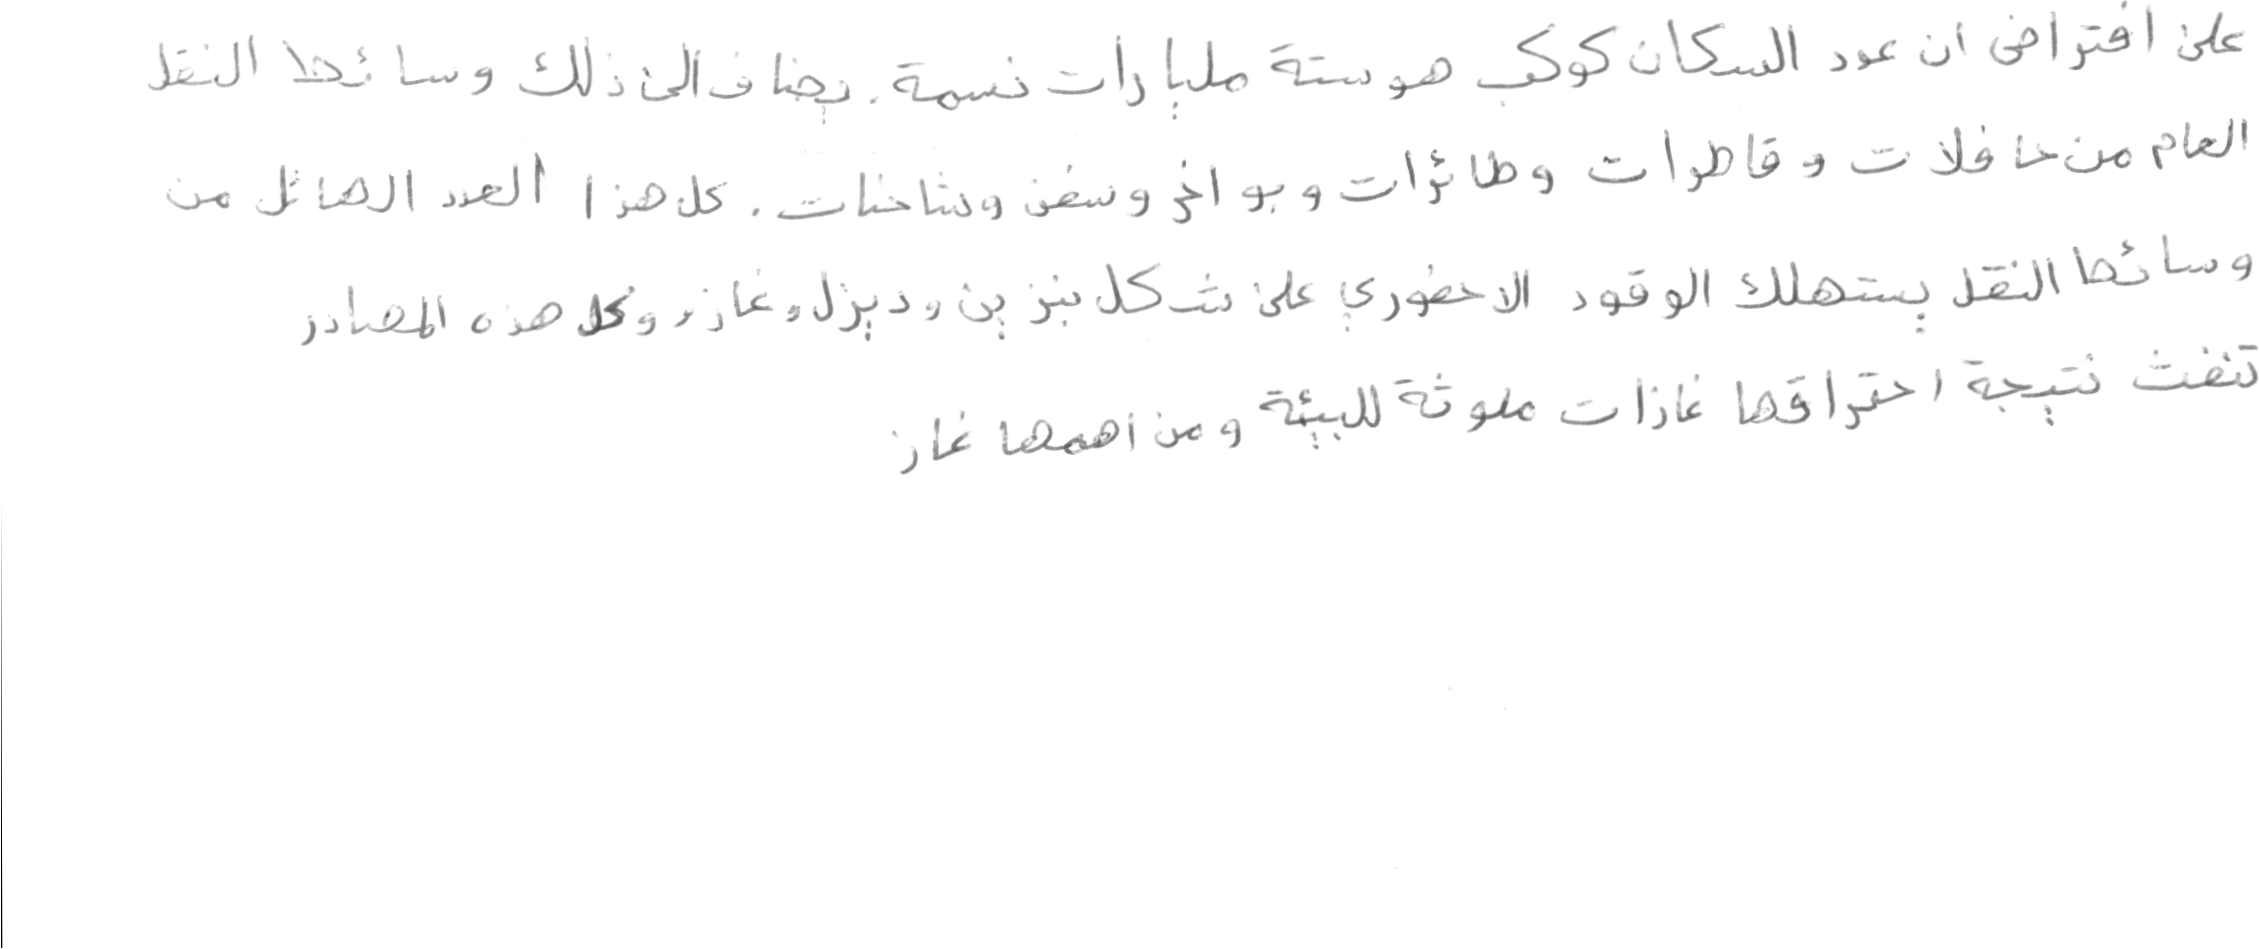 على افتراض ان عدد السكان كوكب هو ستة مليارات نسمة. يضاف الى ذلك وسائط النقل
العام من حافلات و قاطرات وطائرات و بواخر وسفن وشاحنات. كل هذا العدد الهائل من
وسائط النقل يستهلك الوقود الاحفوري على شكل بنزين وديزل وغاز، وكل هذه المصادر
تنفث نتيجة احتراقها غازات ملوثة للبيئة ومن اهمها غاز